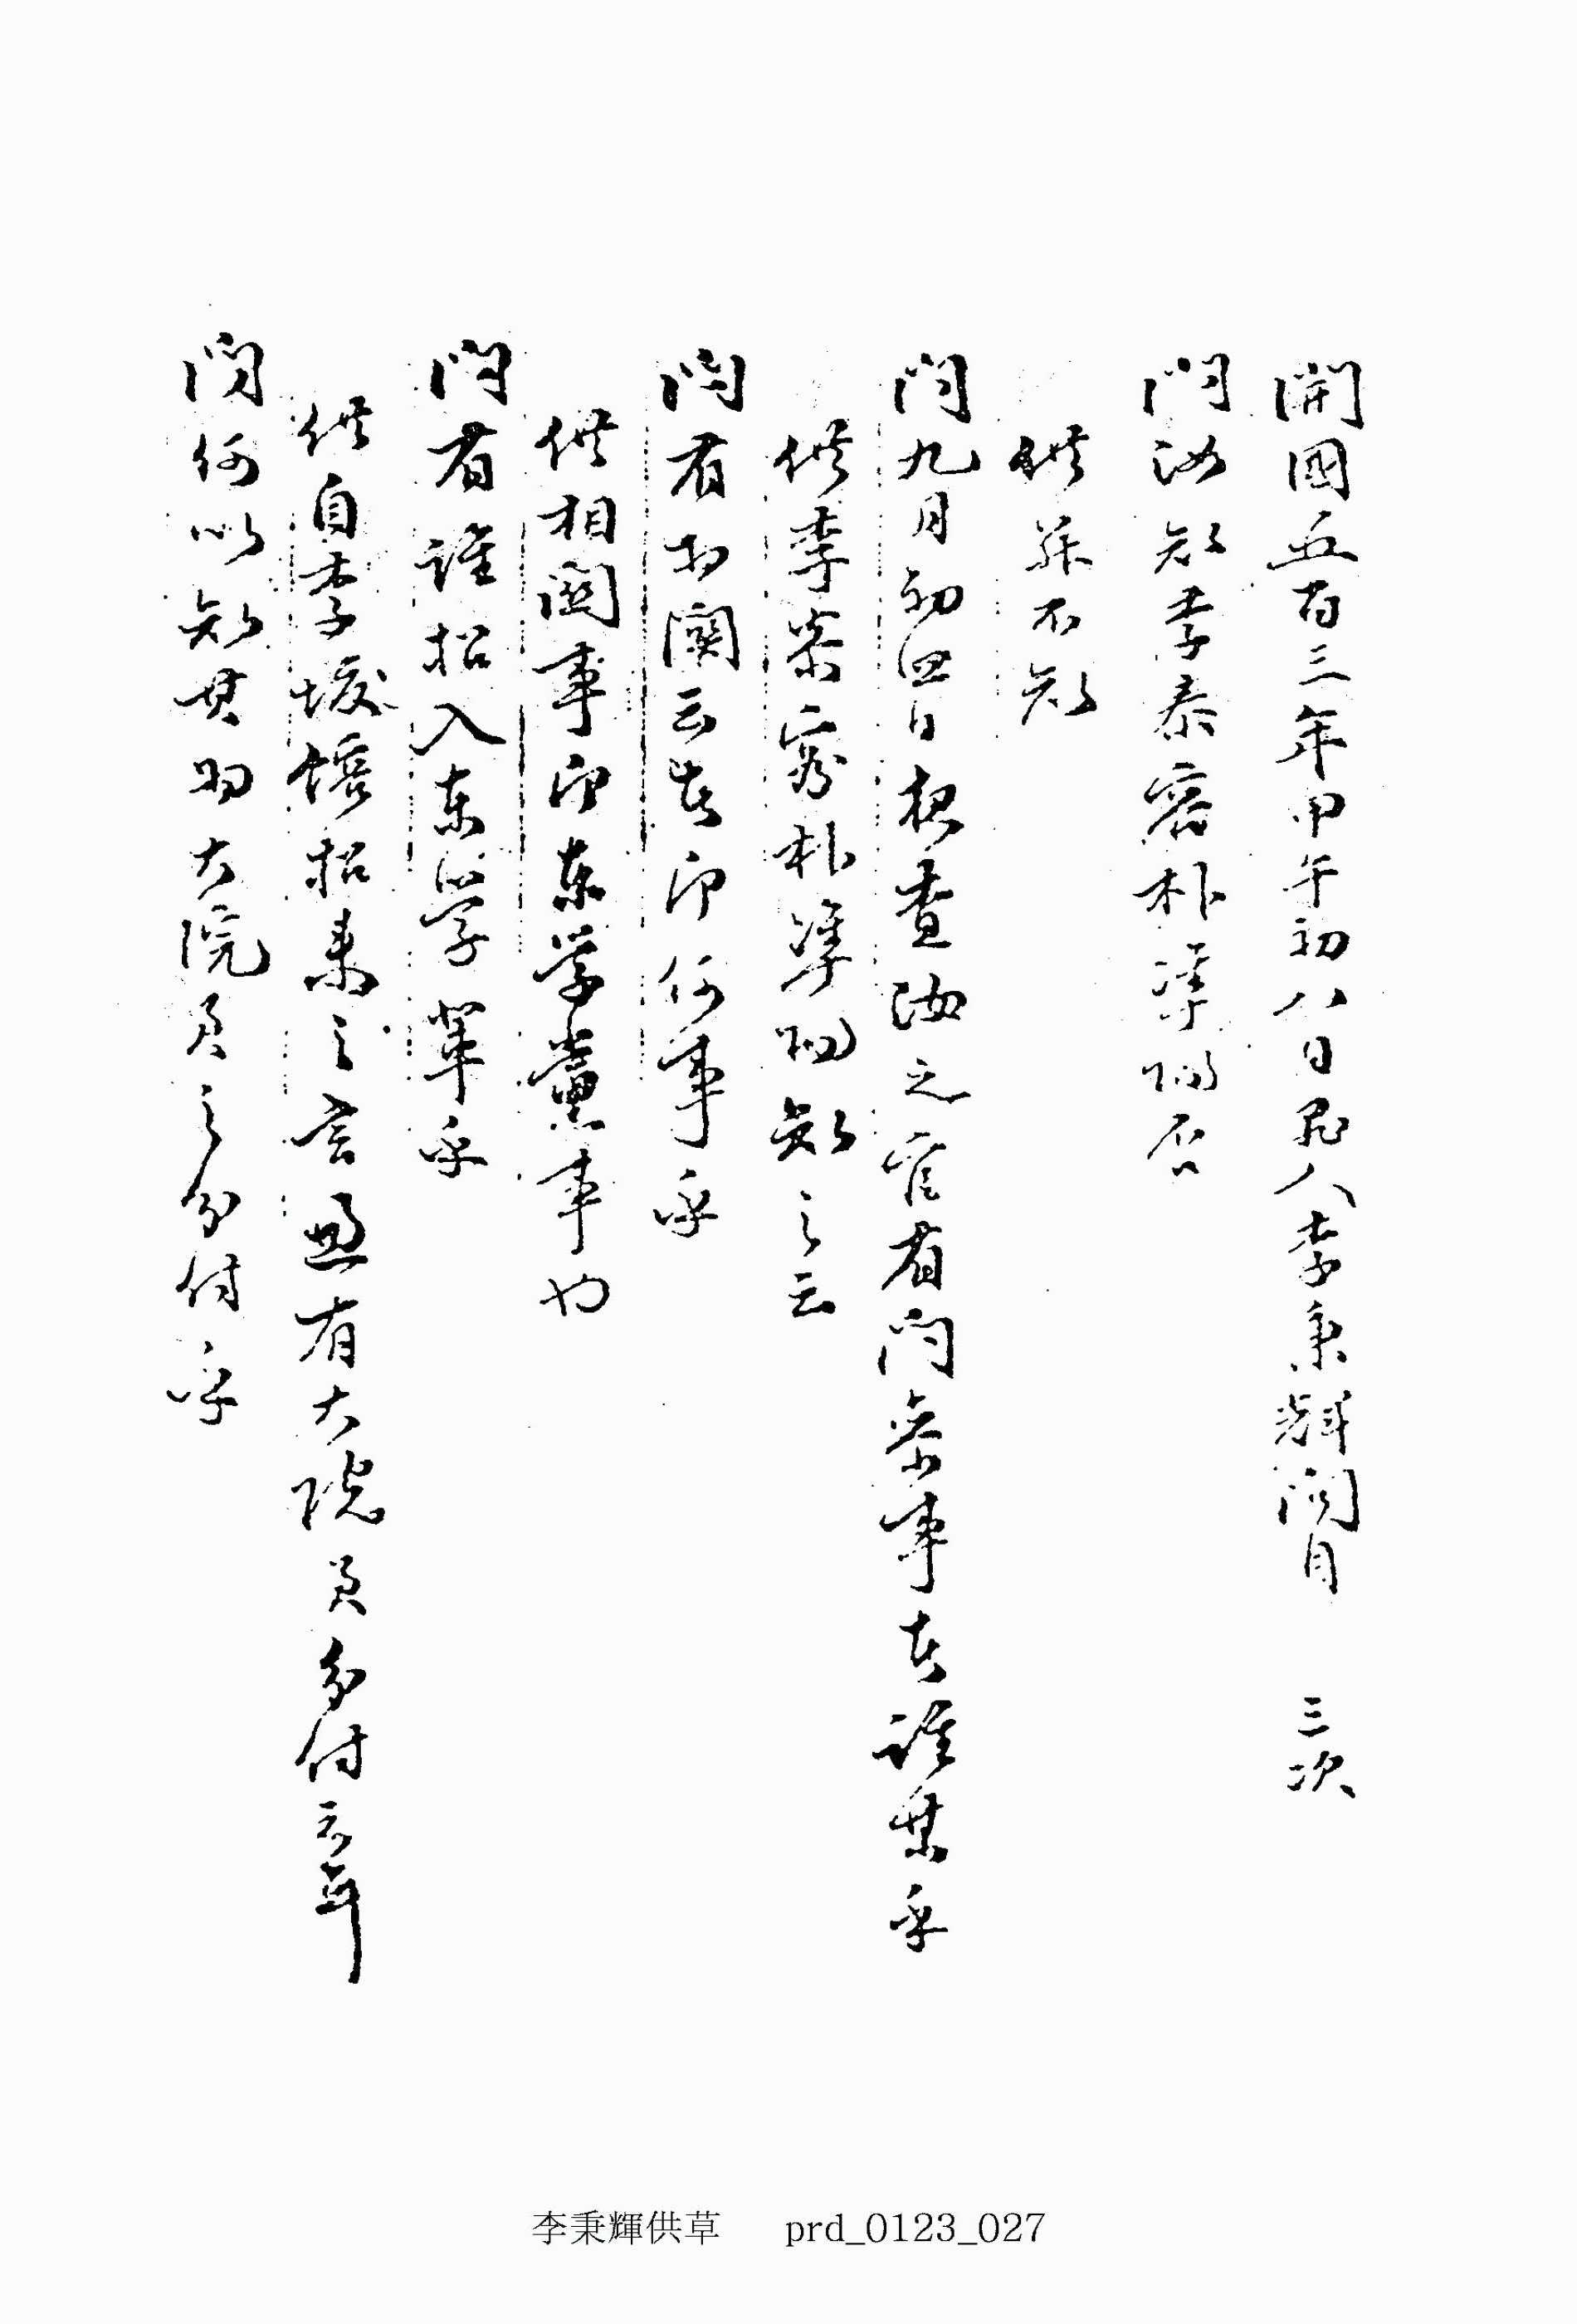 開國五百三年甲午初八日罪人李秉輝問目 三次
問汝知李泰容朴準陽否
供并不知
問九月初四日查汝之有事者誰某乎
供李泰容朴準陽知之云
問有相關云者卽何事乎
供相関事卽東學黨事也
問有誰招入東學軍乎
供自李埈鎔招來之言有大院君分付云耳
問何以知其為大院君之分付乎
李秉輝供草 prd_0123_027